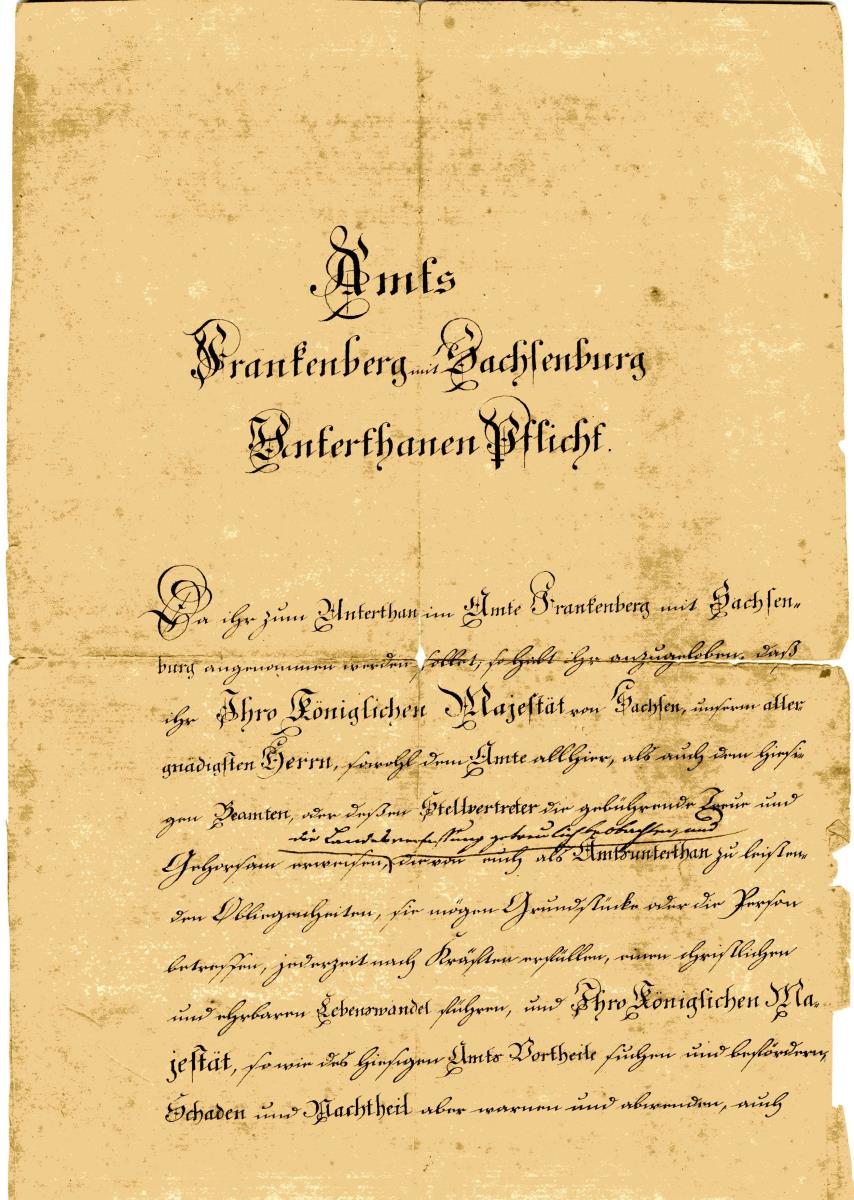 Amts
Frankenberg mit Sachsenburg
Unterthanen Pflicht.
Da ihr zum Unterthan im Amte Frankenberg mit Sachsen-
burg angenommen werden sollet, so habt ihr anzugeloben, daß
ihr Ihro Königlichen Majestät von Sachsen, unserm aller-
gnädigsten Herrn, sowohl dem Amte allhier, als auch dem hiesi-
gen Beamten, oder deßen Stellvertreter die gebührende Treue und
die Landesverfassung getreulich beobachten, und
Gehorsam erweisen, die von euch als Amtsunterthan zu leisten-
den Obliegenheiten, sie mögen Grundstücke oder die Person
betreffen, jederzeit nach Kräften erfüllen, einen christlichen
und ehrbaren Lebenswandel führen, und Ihro Königlichen Ma-
jestät, so wie des hiesigen Amts Vortheile suchen und befördern,
Schaden und Nachtheil aber warnen und abwenden, auch